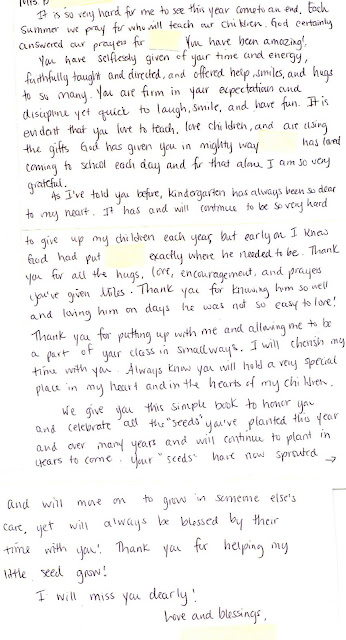 Mrs. B
It is so very hard for me to see this year come to an end. Each
Summer we pray for who will teach our children. God certainly
answered our prayers for You have been amazing!
You have selflessly given of your time and energy,
faithfully taught and directed, and offered help, smiles, and hugs
to so many. You are firm in your expectations and
discipline yet quick to laugh, smile, and have fun. It is
evident that you love to teach, love children, and are using
the gifts God has given you in mighty way has loved
coming to school each day and for that alone I am so very
grateful.
As I've told you before, kindergarten has always been so dear
to my heart. It has and will continue to be so very hard
to give up my children each year, but early on I knew
God had put exactly where he needed to be. Thank
you for all the hugs, love, encouragement, and prayers
you've given Miles. Thank you for knowing him so well
and loving him on days he was not so easy to love!
Thank you for putting up with me and allowing me to be
a part of your class in small ways. I will cherish my
time with you. Always know you will hold a very special
place in my heart and in the hearts of my children.
We give you this simple book to honor you
and celebrate all the "seeds" you've planted this year
and over many years and will continue to plant in
years to come. Your "seeds" have now sprouted →
and will move on to grow in someone else's
care, yet will always be blessed by their
time with you! Thank you for helping my
little seed grow!
I will miss you dearly!
Love and blessings,